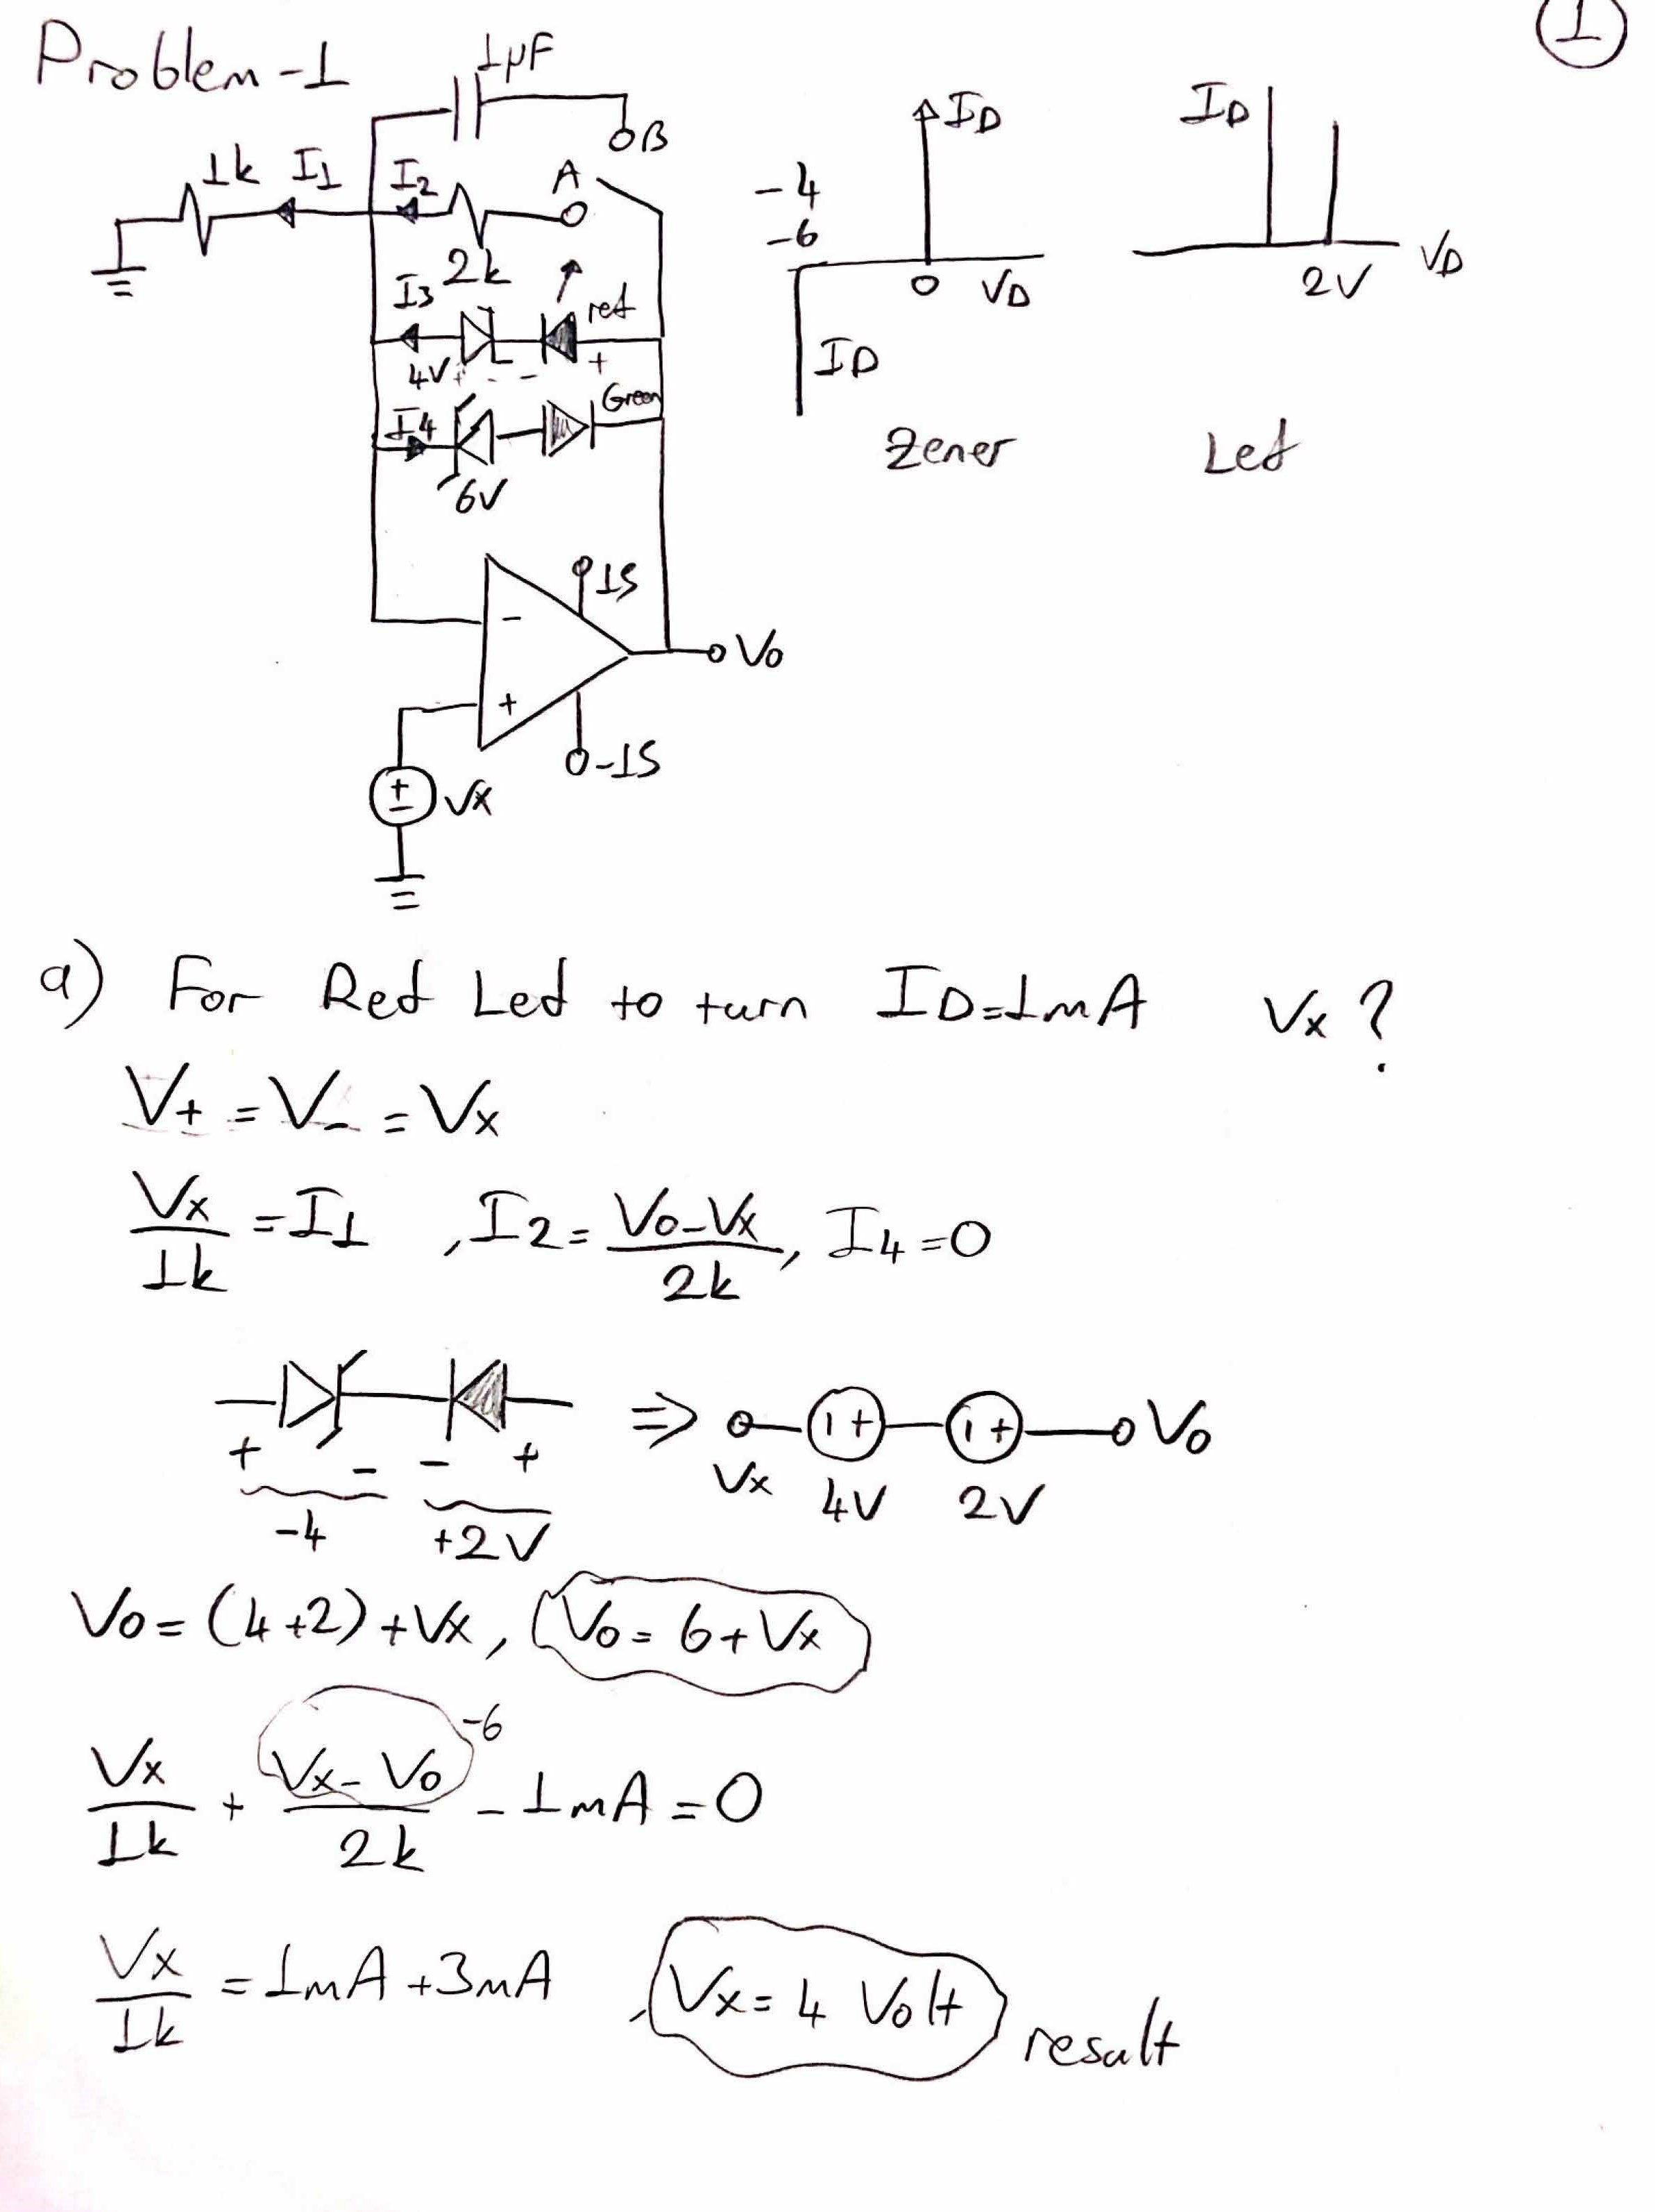 1
Problem-1
1μF
B
1k I1 I2 A
2k
I3 red
+
4V + - -
Green
I4
6V
15
-
Vo
+
-15
+
-
Vx
ID
-4
-6
0 VD
ID
Zener
ID
2V VD
Led
a) For Red Led to turn ID=1mA Vx?
V+ = V- = Vx
Vx/1k = I1 , I2 = Vo-Vx/2k , I4=0
+ - - + ⇒ - + - + Vo
-4 +2V Vx 4V 2V
Vo = (4+2)+Vx, Vo = 6+Vx
-6
Vx/1k + Vx-Vo/2k - 1mA = 0
Vx/1k = 1mA+3mA , Vx = 4 Volt result